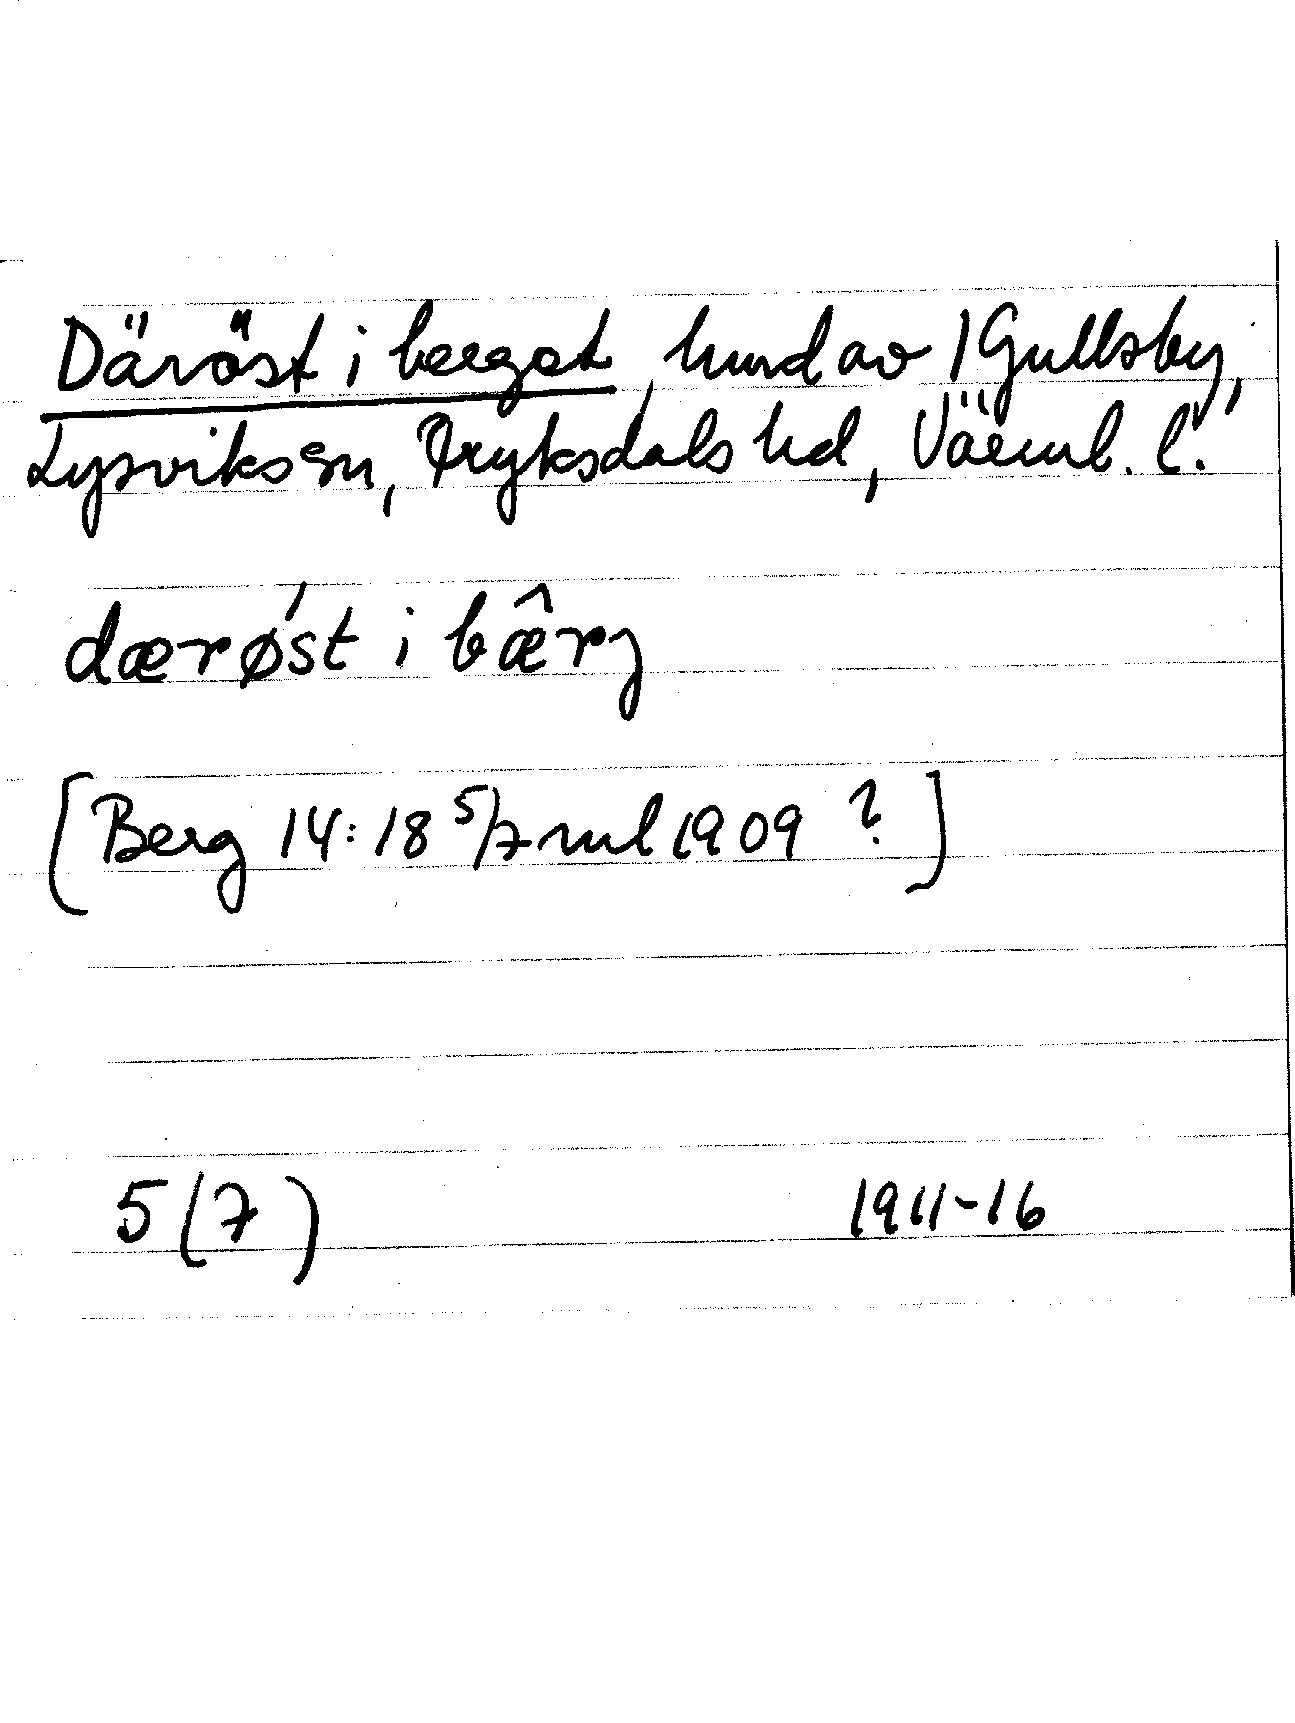 Däröst i berget, hmd av 1 Gullsby,
Lysviks sn, Fryksdals hd, Värml. l.
dærøśt i bærg
[Berg 14:18 5/7 ml 1909 ?]
5 (7) 1911-16